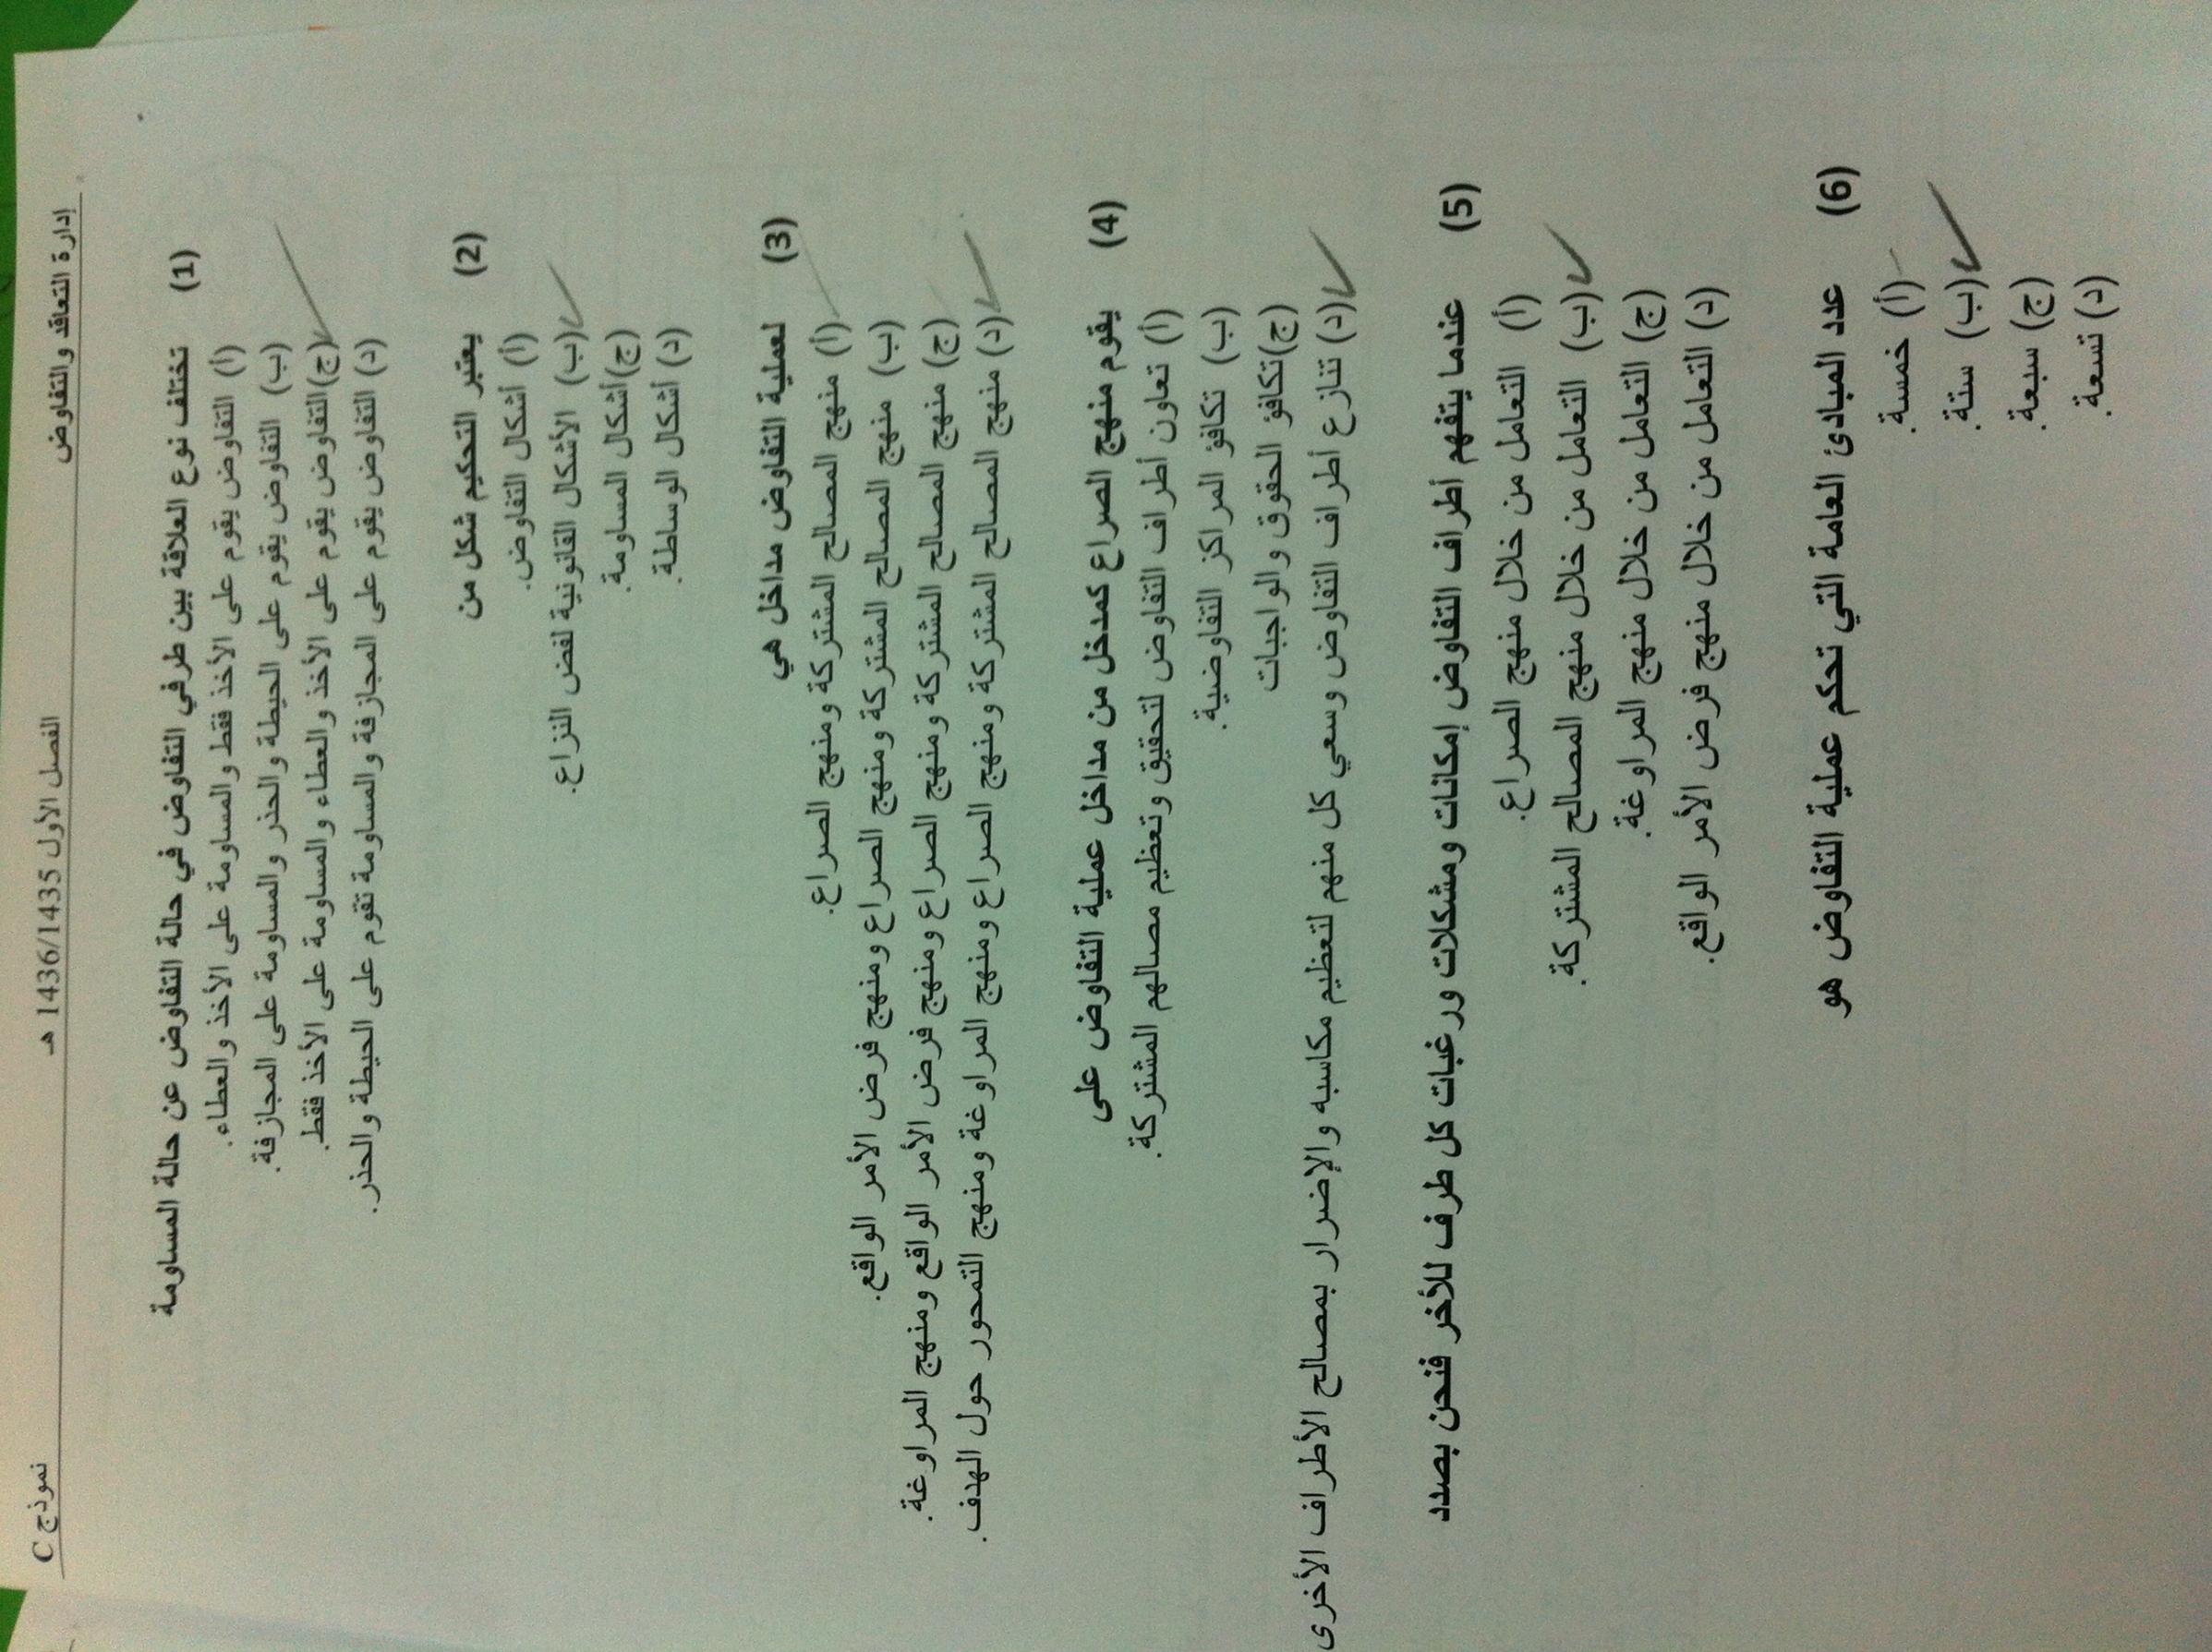 إدارة التعاقد والتفاوض الفصل الأول 1436/1435 هـ نموذج C
(1) تختلف نوع العلاقة بين طرفي التفاوض في حالة التفاوض عن حالة المساومة
(أ) التفاوض يقوم على الأخذ فقط والمساومة على الأخذ والعطاء.
(ب) التفاوض يقوم على الحيطة والحذر والمساومة على المجازفة.
(ج) التفاوض يقوم على الأخذ والعطاء والمساومة على الأخذ فقط.
(د) التفاوض يقوم على المجازفة والمساومة تقوم على الحيطة والحذر.
(2) يعتبر التحكيم شكل من
(أ) أشكال التفاوض.
(ب) الأشكال القانونية لفض النزاع.
(ج) أشكال المساومة.
(د) أشكال الوساطة.
(3) لعملية التفاوض مداخل هي
(أ) منهج المصالح المشتركة ومنهج الصراع.
(ب) منهج المصالح المشتركة ومنهج الصراع ومنهج فرض الأمر الواقع.
(ج) منهج المصالح المشتركة ومنهج الصراع ومنهج فرض الأمر الواقع ومنهج المراوغة.
(د) منهج المصالح المشتركة ومنهج الصراع ومنهج المراوغة ومنهج التمحور حول الهدف.
(4) يقوم منهج الصراع كمدخل من مداخل عملية التفاوض على
(أ) تعاون أطراف التفاوض لتحقيق وتعظيم مصالهم المشتركة.
(ب) تكافؤ المراكز التفاوضية.
(ج) تكافؤ الحقوق والواجبات
(د) تنازع أطراف التفاوض وسعي كل منهم لتعظيم مكاسبه والإضرار بمصالح الأطراف الأخرى
(5) عندما يتفهم أطراف التفاوض إمكانات ومشكلات ورغبات كل طرف للأخر فنحن بصدد
(أ) التعامل من خلال منهج الصراع.
(ب) التعامل من خلال منهج المصالح المشتركة.
(ج) التعامل من خلال منهج المراوغة.
(د) التعامل من خلال منهج فرض الأمر الواقع.
(6) عدد المبادئ العامة التي تحكم عملية التفاوض هو
(أ) خمسة.
(ب) ستة.
(ج) سبعة.
(د) تسعة.